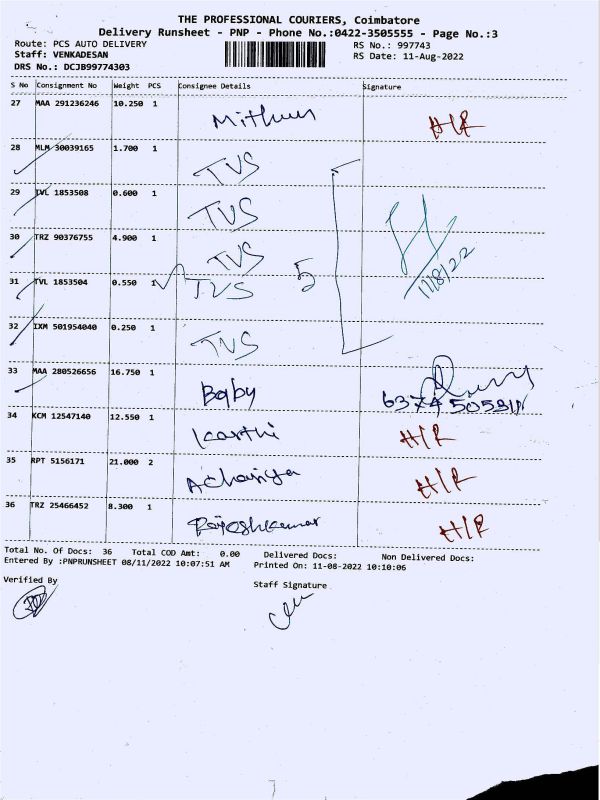 THE PROFESSIONAL COURIERS, Coimbatore
Delivery Runsheet - PNP - Phone No.:0422-3505555 - Page No.:3
Route: PCS AUTO DELIVERY RS No.: 997743
Staff: VENKADESAN RS Date: 11-Aug-2022
DRS No.: DCJB99774303
S No Consignment No Weight PCS Consignee Details Signature
27 MAA 291236246 10.250 1 Mithun H/R
28 MLM 30039165 1.700 1 TVS
29 IVL 1853508 0.600 1 TVS
30 TRZ 90376755 4.900 1 TVS
31 TVL 1853504 0.550 1 TVS 5 11/8/22
32 IXM 501954040 0.250 1 TVS
33 MAA 280526656 16.750 1 Baby
34 KCM 12547140 12.550 1 Karthi H/R
35 RPT 5156171 21.000 2 Achariya H/R
36 TRZ 25466452 8.300 1 Rajeshkumar H/R
Total No. Of Docs: 36 Total COD Amt: 0.00 Delivered Docs: Non Delivered Docs:
Entered By :PNPRUNSHEET 08/11/2022 10:07:51 AM Printed On: 11-08-2022 10:10:06
Verified By Staff Signature